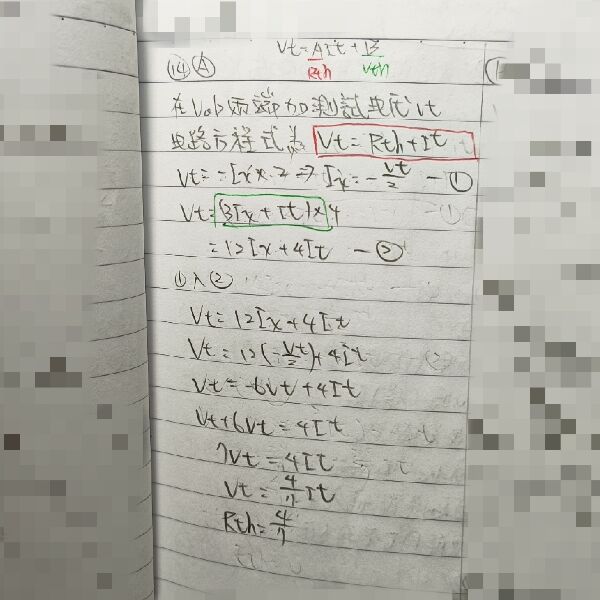 Vt = AIt + B
Rth Vth
⑭ Ⓐ
在Vab兩端加測試電流Vt
電路方程式為 Vt = Rth + It
Vt = -Ix × 2 ⇒ Ix = -Vt/2 — ①
Vt = (3Ix + It) × 4
= 12Ix + 4It — ②
① 入 ②
Vt = 12Ix + 4It
Vt = 12(-Vt/2) + 4It
Vt = -6Vt + 4It
Vt + 6Vt = 4It
7Vt = 4It
Vt = 4/7 It
Rth = 4/7